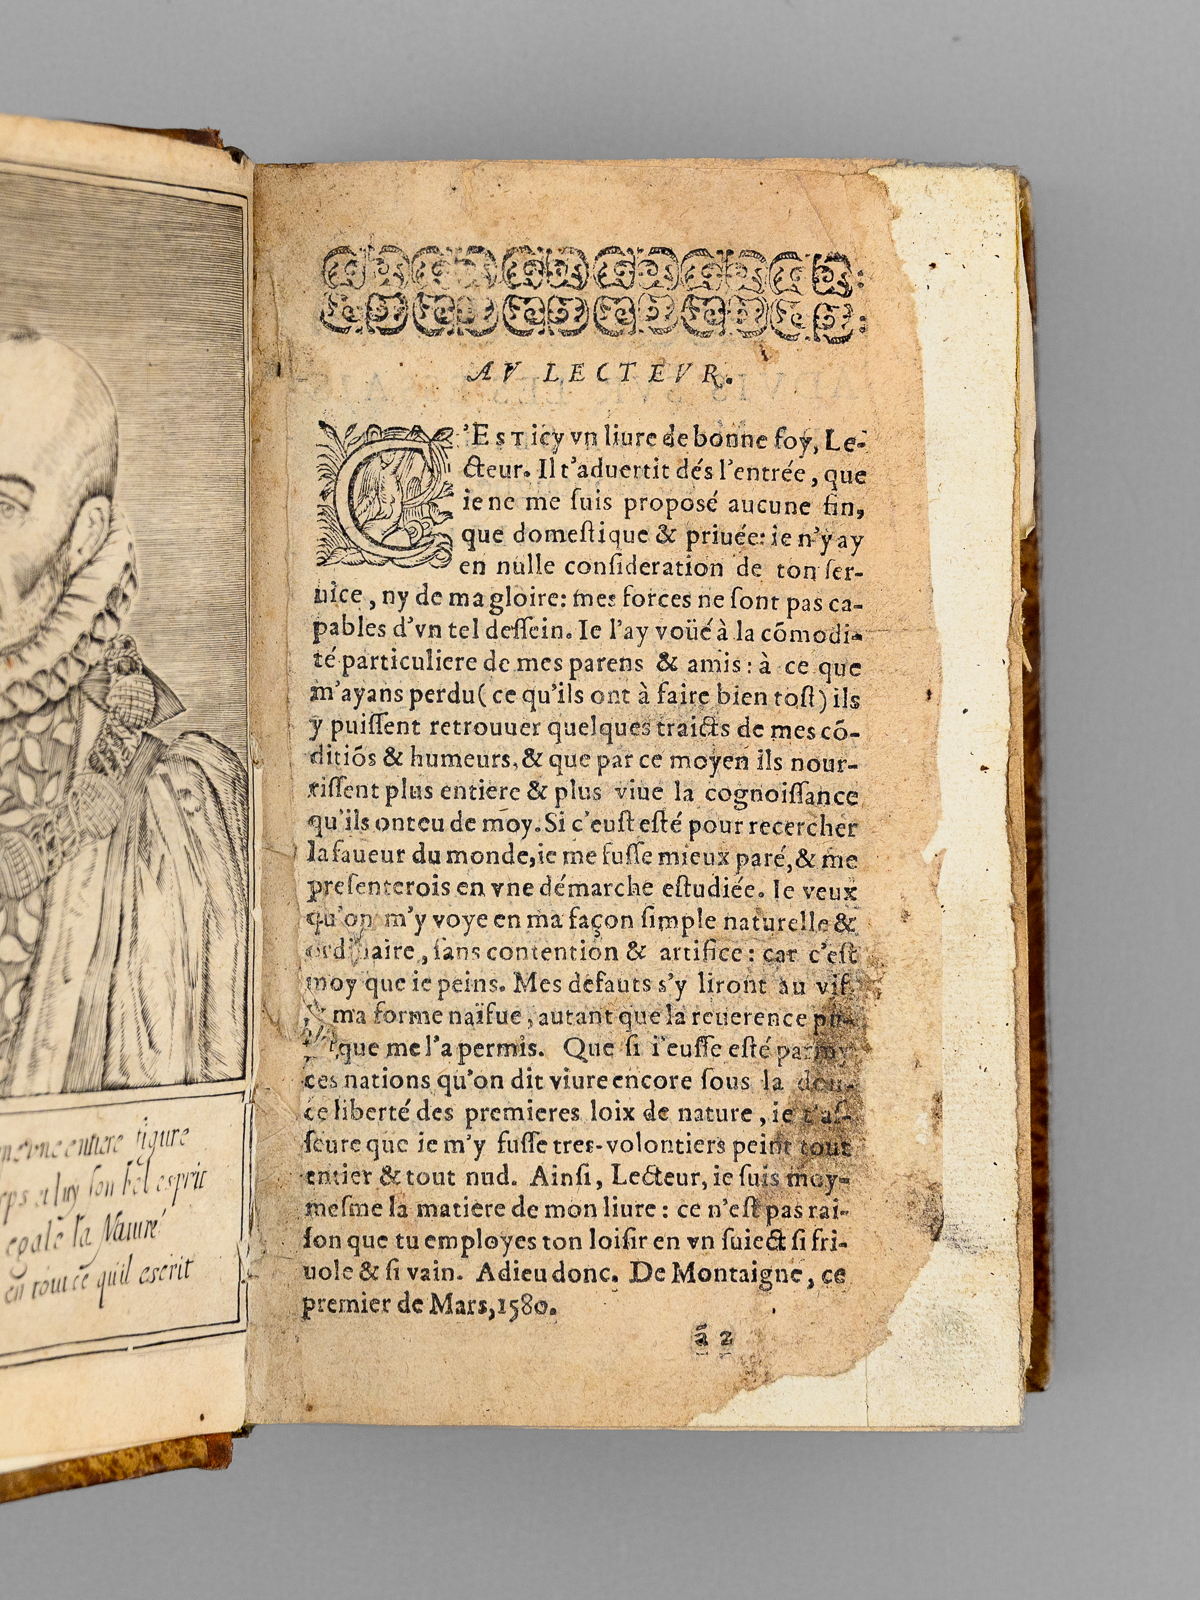 entiere figure
luy son bel esprit
egale la Nature
en tout ce quil escrit
AV LECTEVR.
C'EST icy vn liure de bonne foy, Le-
cteur. Il t'aduertit dés l'entrée, que
ie ne me suis proposé aucune fin,
que domestique & priuée: ie n'y ay
en nulle consideration de ton ser-
uice, ny de ma gloire: mes forces ne sont pas ca-
pables d'vn tel dessein. Ie l'ay voüé à la cõmodi-
té particuliere de mes parens & amis: à ce que
m'ayans perdu (ce qu'ils ont à faire bien tost) ils
y puissent retrouuer quelques traicts de mes cõ-
ditiõs & humeurs, & que par ce moyen ils nour-
rissent plus entiere & plus viue la cognoissance
qu'ils ont eu de moy. Si c'eust esté pour recercher
la faueur du monde, ie me fusse mieux paré, & me
presenterois en vne démarche estudiée. Ie veux
qu'on m'y voye en ma façon simple naturelle &
ordinaire, sans contention & artifice: car c'est
moy que ie peins. Mes defauts s'y liront au vif,
& ma forme naïfue, autant que la reuerence pu-
blique me l'a permis. Que si i'eusse esté parmy
ces nations qu'on dit viure encore sous la dou-
ce liberté des premieres loix de nature, ie t'as-
seure que ie m'y fusse tres-volontiers peint tout
entier & tout nud. Ainsi, Lecteur, ie suis moy-
mesme la matiere de mon liure: ce n'est pas rai-
son que tu employes ton loisir en vn suiect si fri-
uole & si vain. Adieu donc. De Montaigne, ce
premier de Mars, 1580.
ã 2